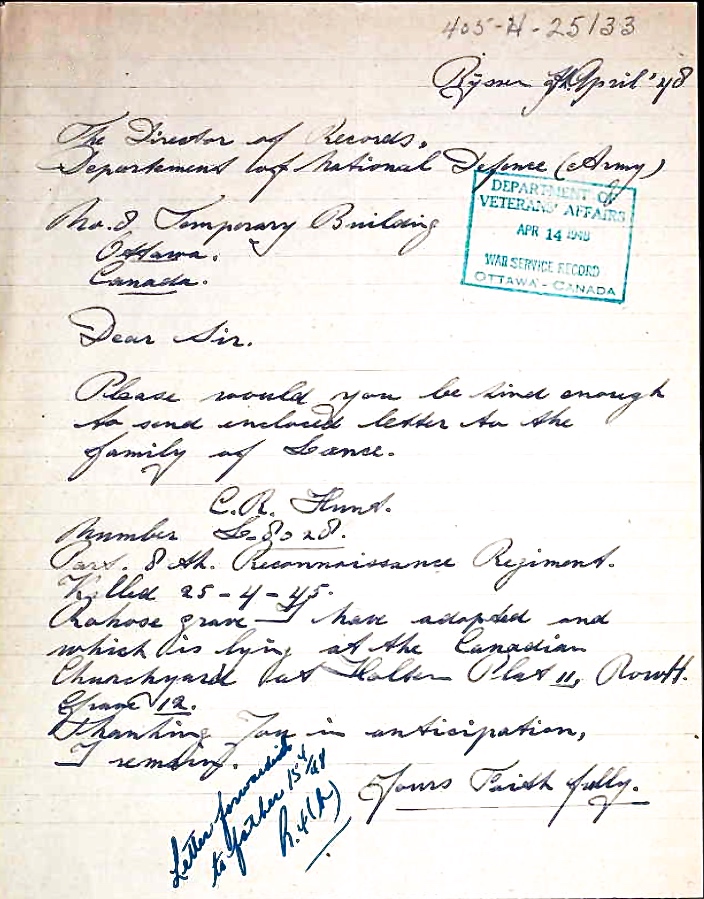 405-H-25133
Ryssen 9th April '48
The Director of Records,
Departement of National Defence (Army)
No. 8 Temporary Building
Ottawa.
Canada.
DEPARTMENT OF
VETERANS' AFFAIRS
APR 14 1948
WAR SERVICE RECORD
OTTAWA - CANADA
Dear Sir.
Please would you be kind enough
to send enclosed letter to the
family of Lance.
C.R. Hunt.
Number L-8028.
Part. 8 th. Reconnaissance Regiment.
Killed 25-4-45.
Whose grave I have adopted and
which is lying at the Canadian
Churchyard at Holten Plat 11, Row H.
Grave 12.
Thanking You in anticipation,
I remain.
Yours Faith fully.
Letter forwarded
to father 15/4/48